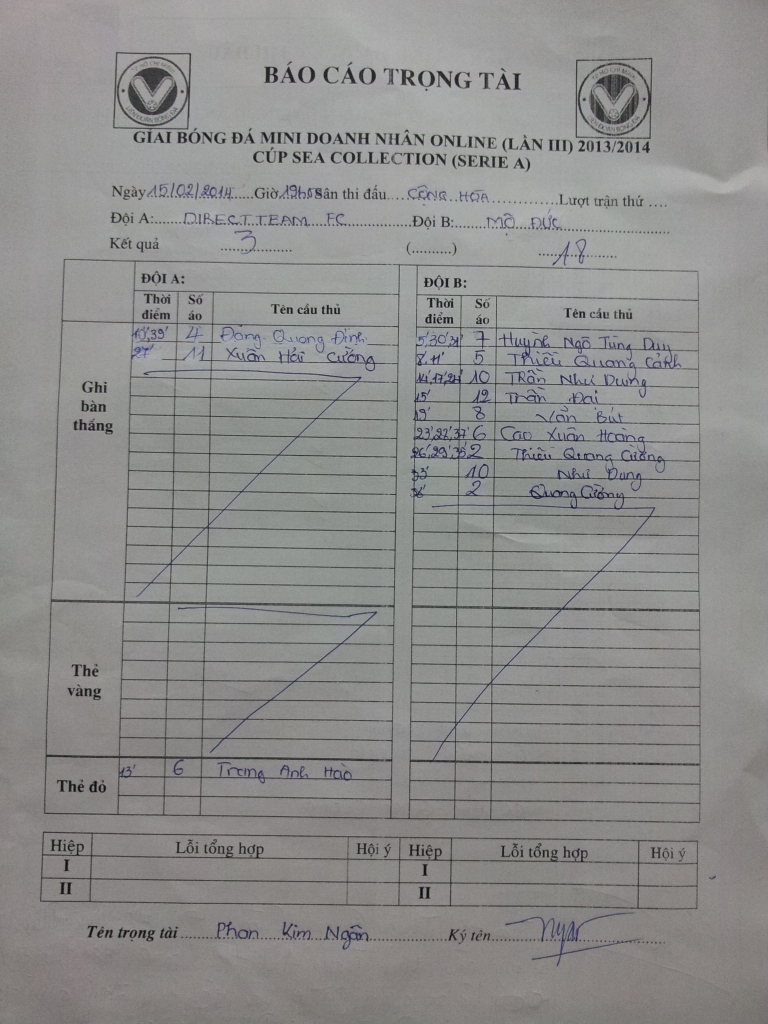 TP HỒ CHÍ MINH
LIÊN ĐOÀN BÓNG ĐÁ
BÁO CÁO TRỌNG TÀI
GIẢI BÓNG ĐÁ MINI DOANH NHÂN ONLINE (LẦN III) 2013/2014
CÚP SEA COLLECTION (SERIE A)
Ngày 15/02/2014 Giờ Sân thi đấu CỘNG HÒA Lượt trận thứ ....
Đội A: DIRECT TEAM FC Đội B: MỘ ĐỨC
Kết quả 3 (..........) 18
ĐỘI A: ĐỘI B:
Thời điểm Số áo Tên cầu thủ Thời điểm Số áo Tên cầu thủ
Ghi bàn thắng
4 Đặng Quang Định 7 Huỳnh Ngô Tùng Duy
27' 11 Xuân Hải Cường 8', 11' 5 Thiều Quang
14', 17', 24' 10 Trần Như Dung
15' 12 Trần Đại
19' 8 Văn Bút
23', 27', 37' 6 Cao Xuân Hoàng
26', 29', 35' 2 Thiều Quang Cường
33' 10 Như Dung
36' 2 Quang Cường
Thẻ vàng
Thẻ đỏ 13' 6 Trang Anh Hào
Hiệp Lỗi tổng hợp Hội ý Hiệp Lỗi tổng hợp Hội ý
I I
II II
Tên trọng tài Phan Kim Ngân Ký tên